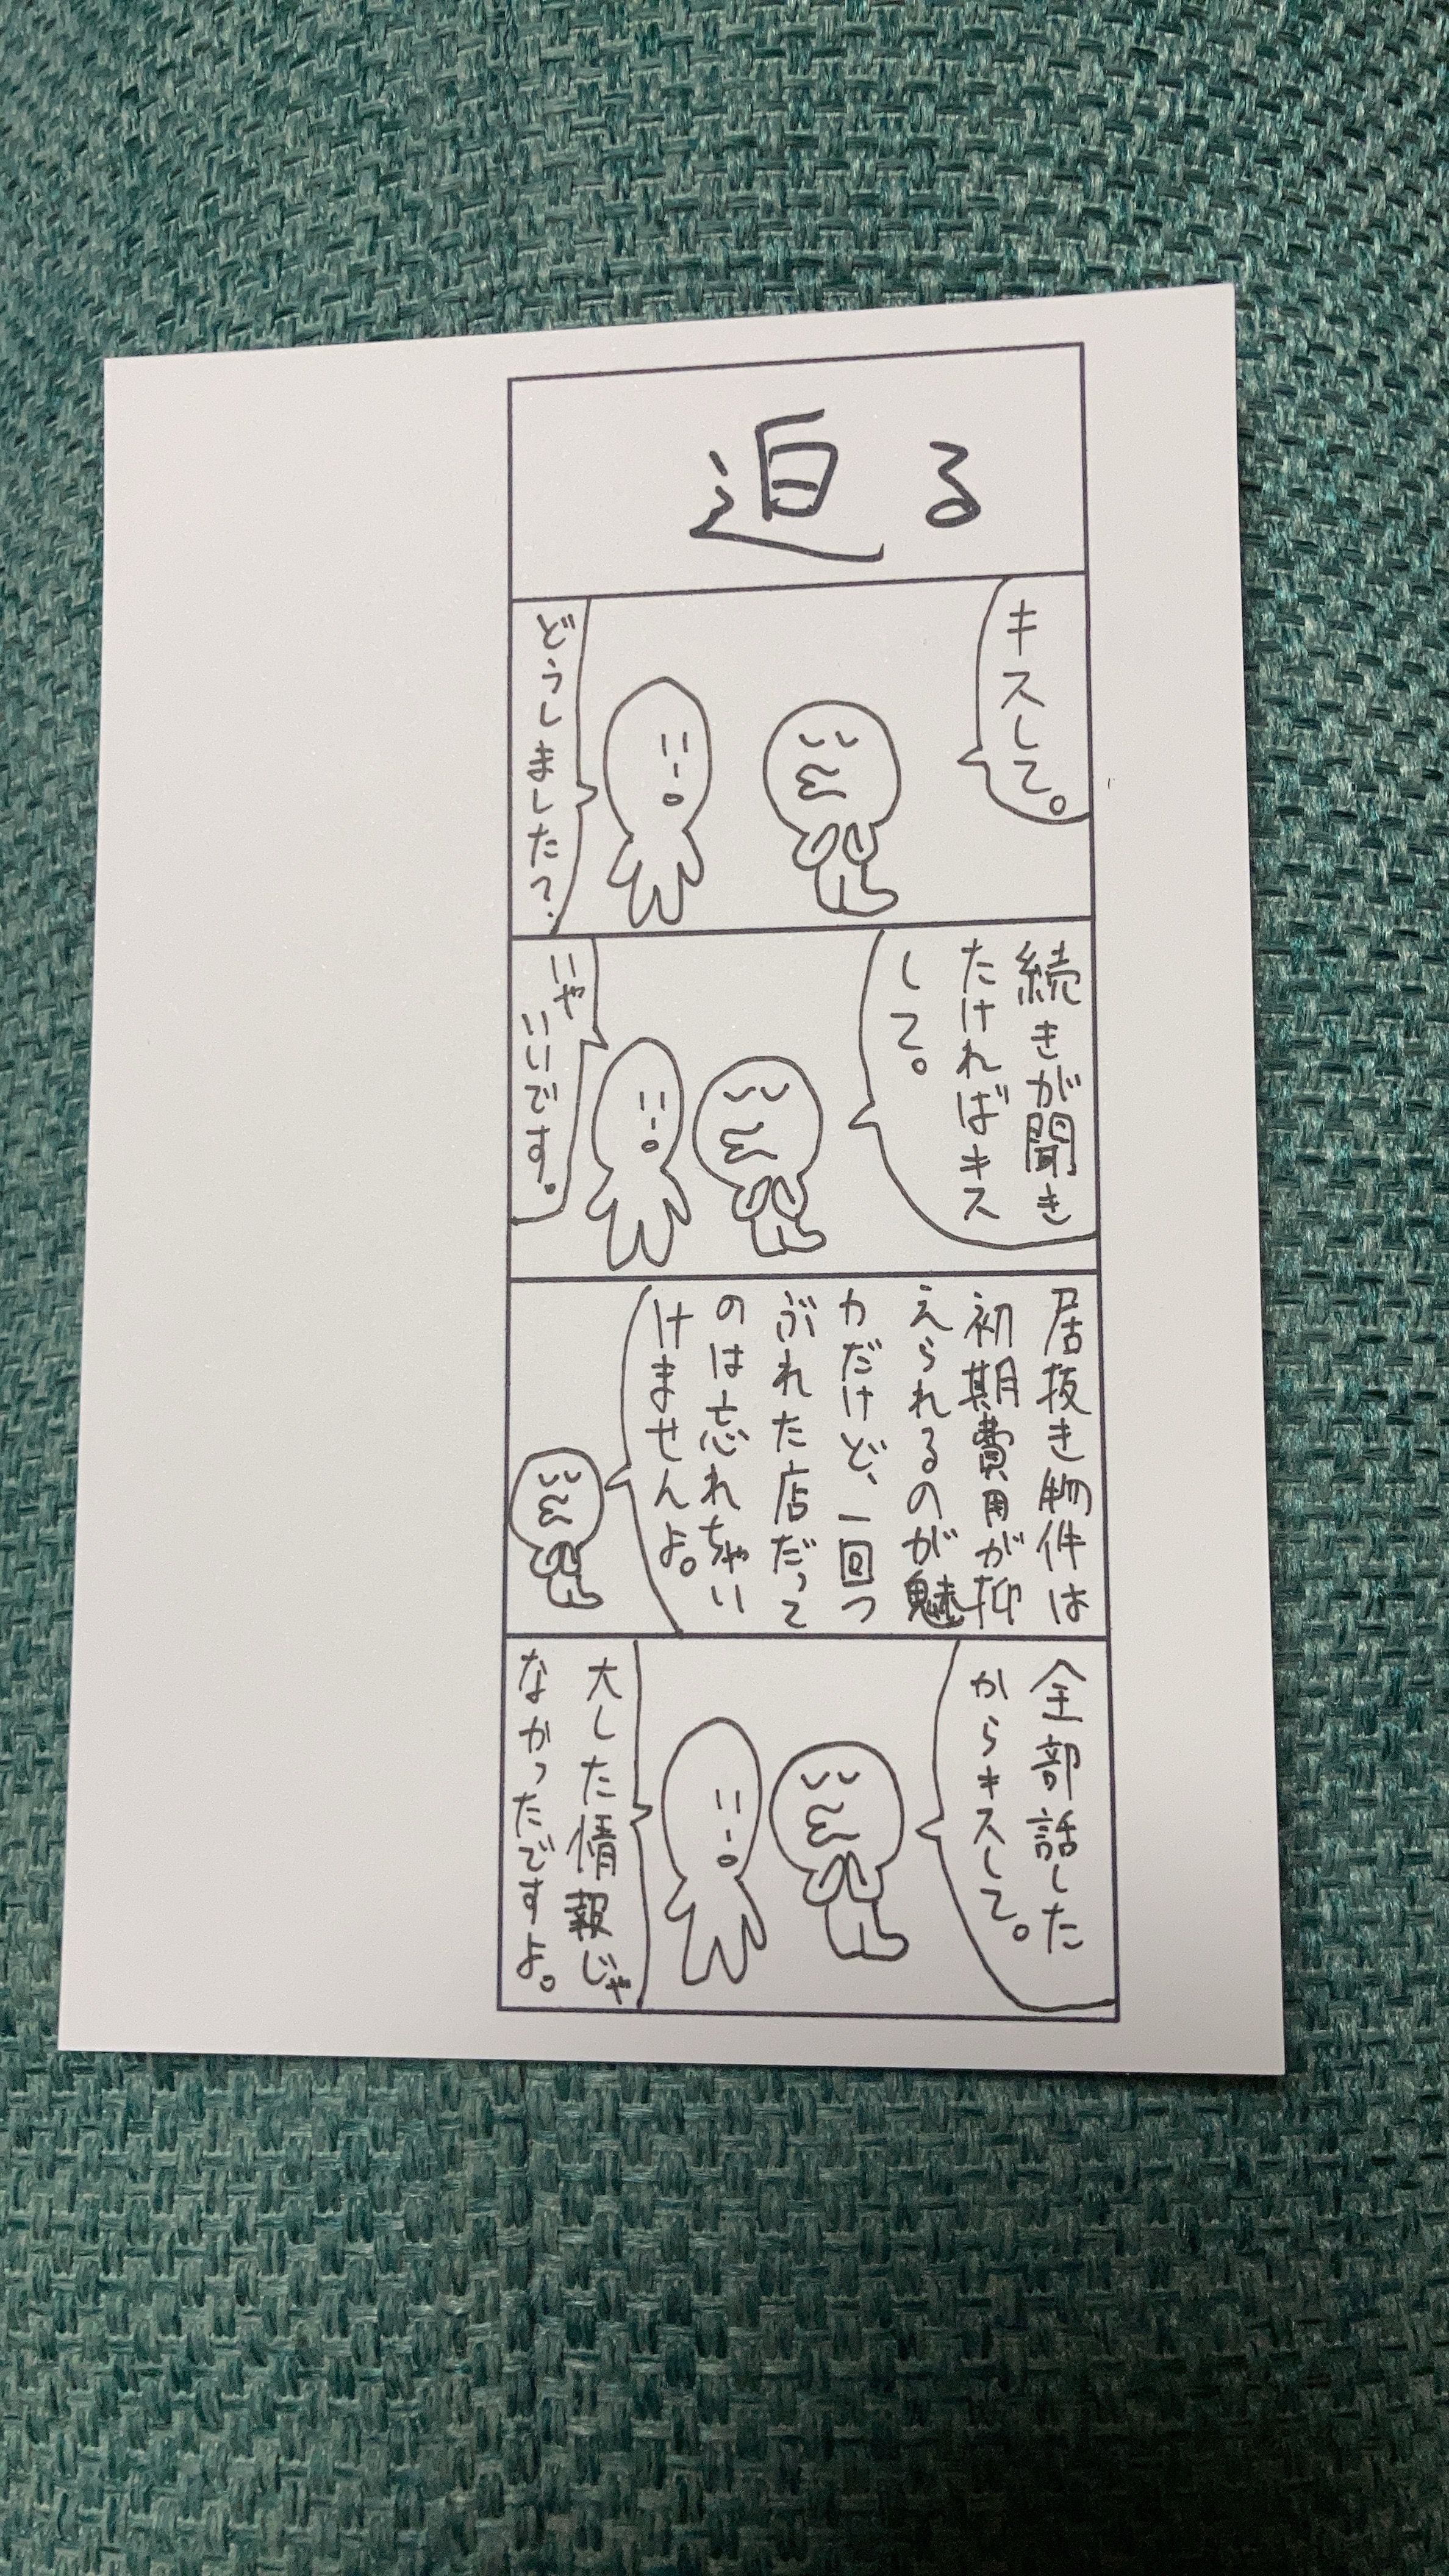 迫る
キスして。
どうしました？
続きが聞き
たければキス
して。
いや
いいです。
居抜き物件は
初期費用が抑
えられるのが魅
力だけど、一回つ
ぶれた店だって
のは忘れちゃい
けませんよ。
全部話した
からキスして。
大した情報じゃ
なかったですよ。